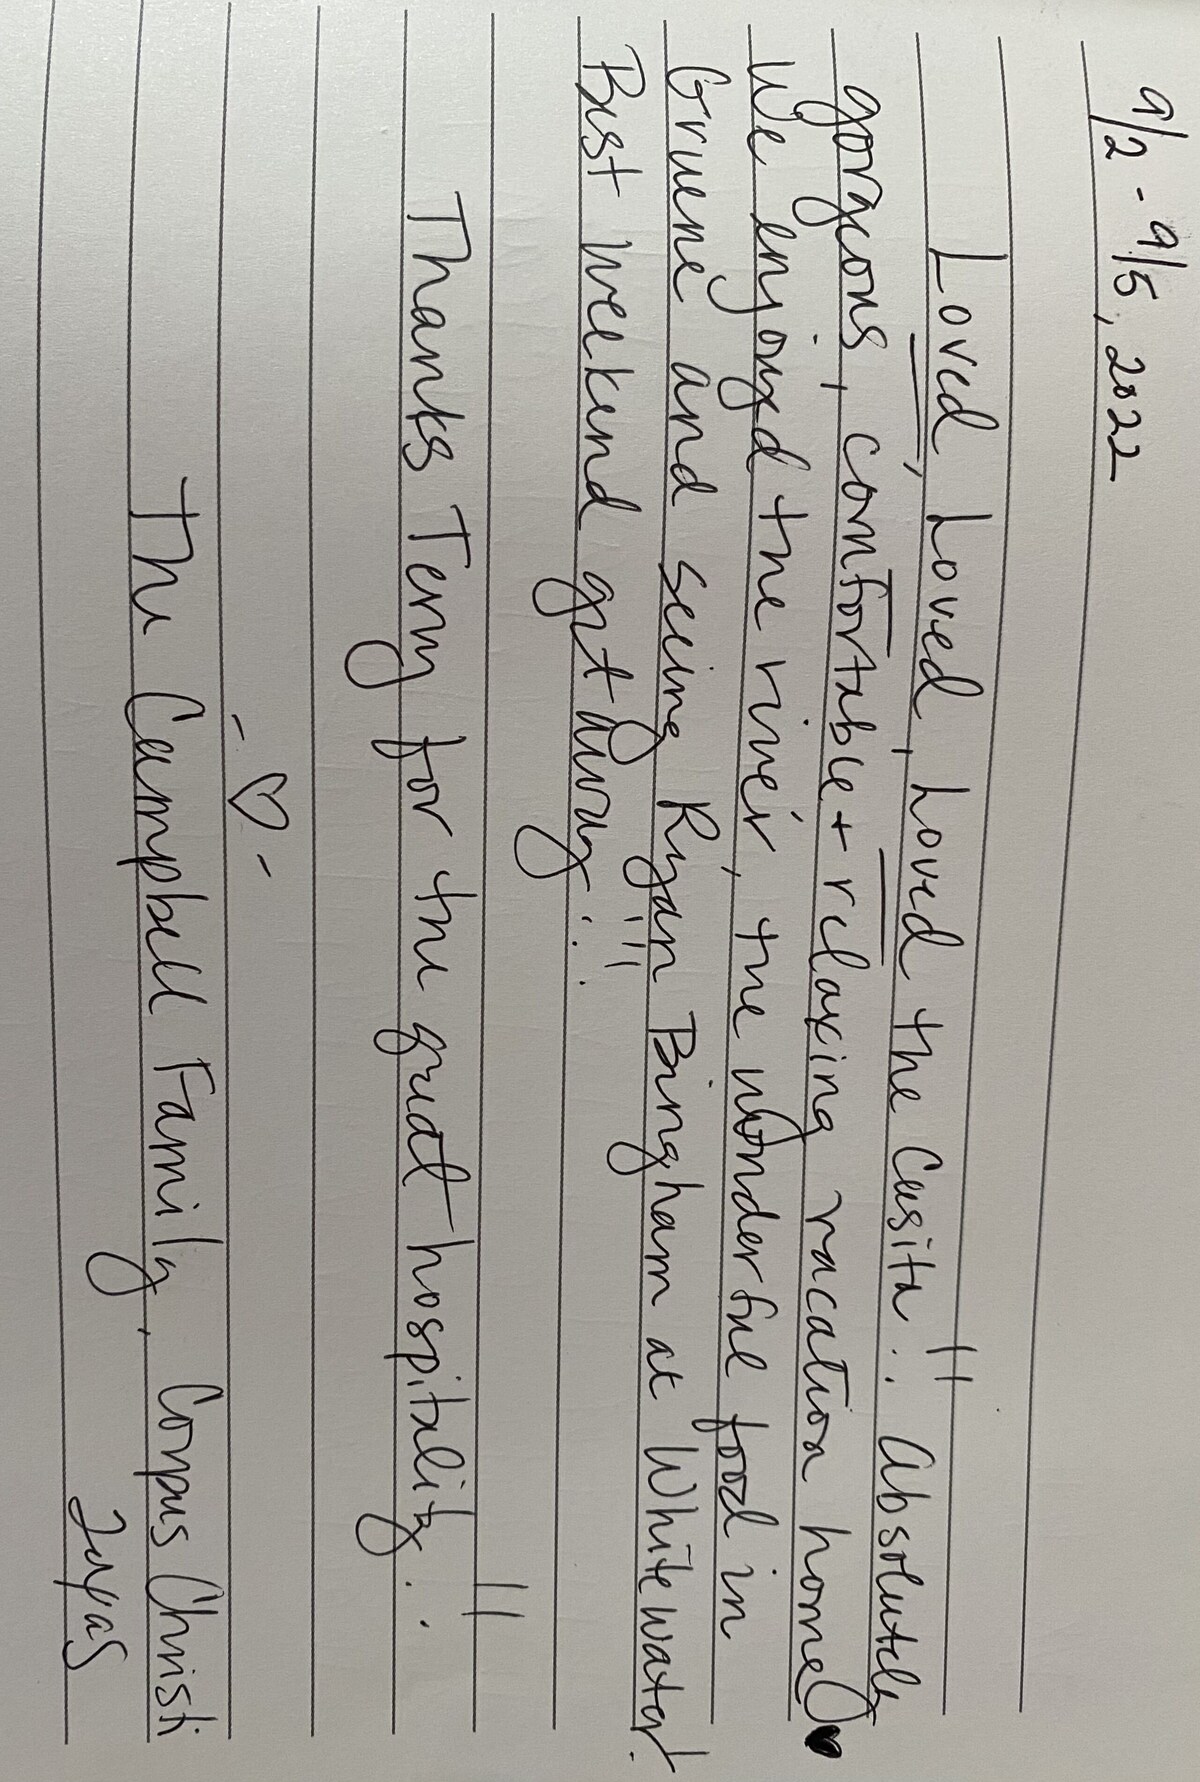 9/2 - 9/5, 2022
Loved, Loved, Loved the Casita!! Absolutely
gorgeous, comfortable + relaxing vacation home ♥
We enjoyed the river, the wonderful food in
Gruene and seeing Ryan Bingham at Whitewater!
Best weekend getaway!!!
Thanks Terry for the great hospitality!!
- ♡ -
The Campbell Family, Corpus Christi
Texas